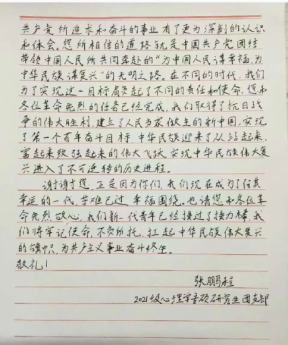 共产党所追求和奋斗的事业有了更为深刻的认识
和体会。您所相信的道路就是中国共产党团结
带领中国人民所共同奔赴的“为中国人民谋幸福，为
中华民族谋复兴”的光明之路。在不同的时代，我们
为了实现这一目标肩负起了不同的责任和使命，您和
各位革命先烈的任务已经完成，我们取得了抗日战
争的伟大胜利，建立了人民当家做主的新中国，实现
了第一个百年奋斗目标，中华民族迎来了从站起来、
富起来到强起来的伟大飞跃，实现中华民族伟大复
兴进入了不可逆转的历史进程。
谢谢您，正是因为你们，我们现在成为了
幸运的一代，苦难已过，幸福围绕，也请您和各位革
命先烈放心，我们新一代青年已经接过了接力棒，我
们将牢记使命，不负所托，扛起中华民族伟大复兴
的旗帜，为共产主义事业奋斗终生。
敬礼！
张鹏程
2021级心理学专硕研究生团支部